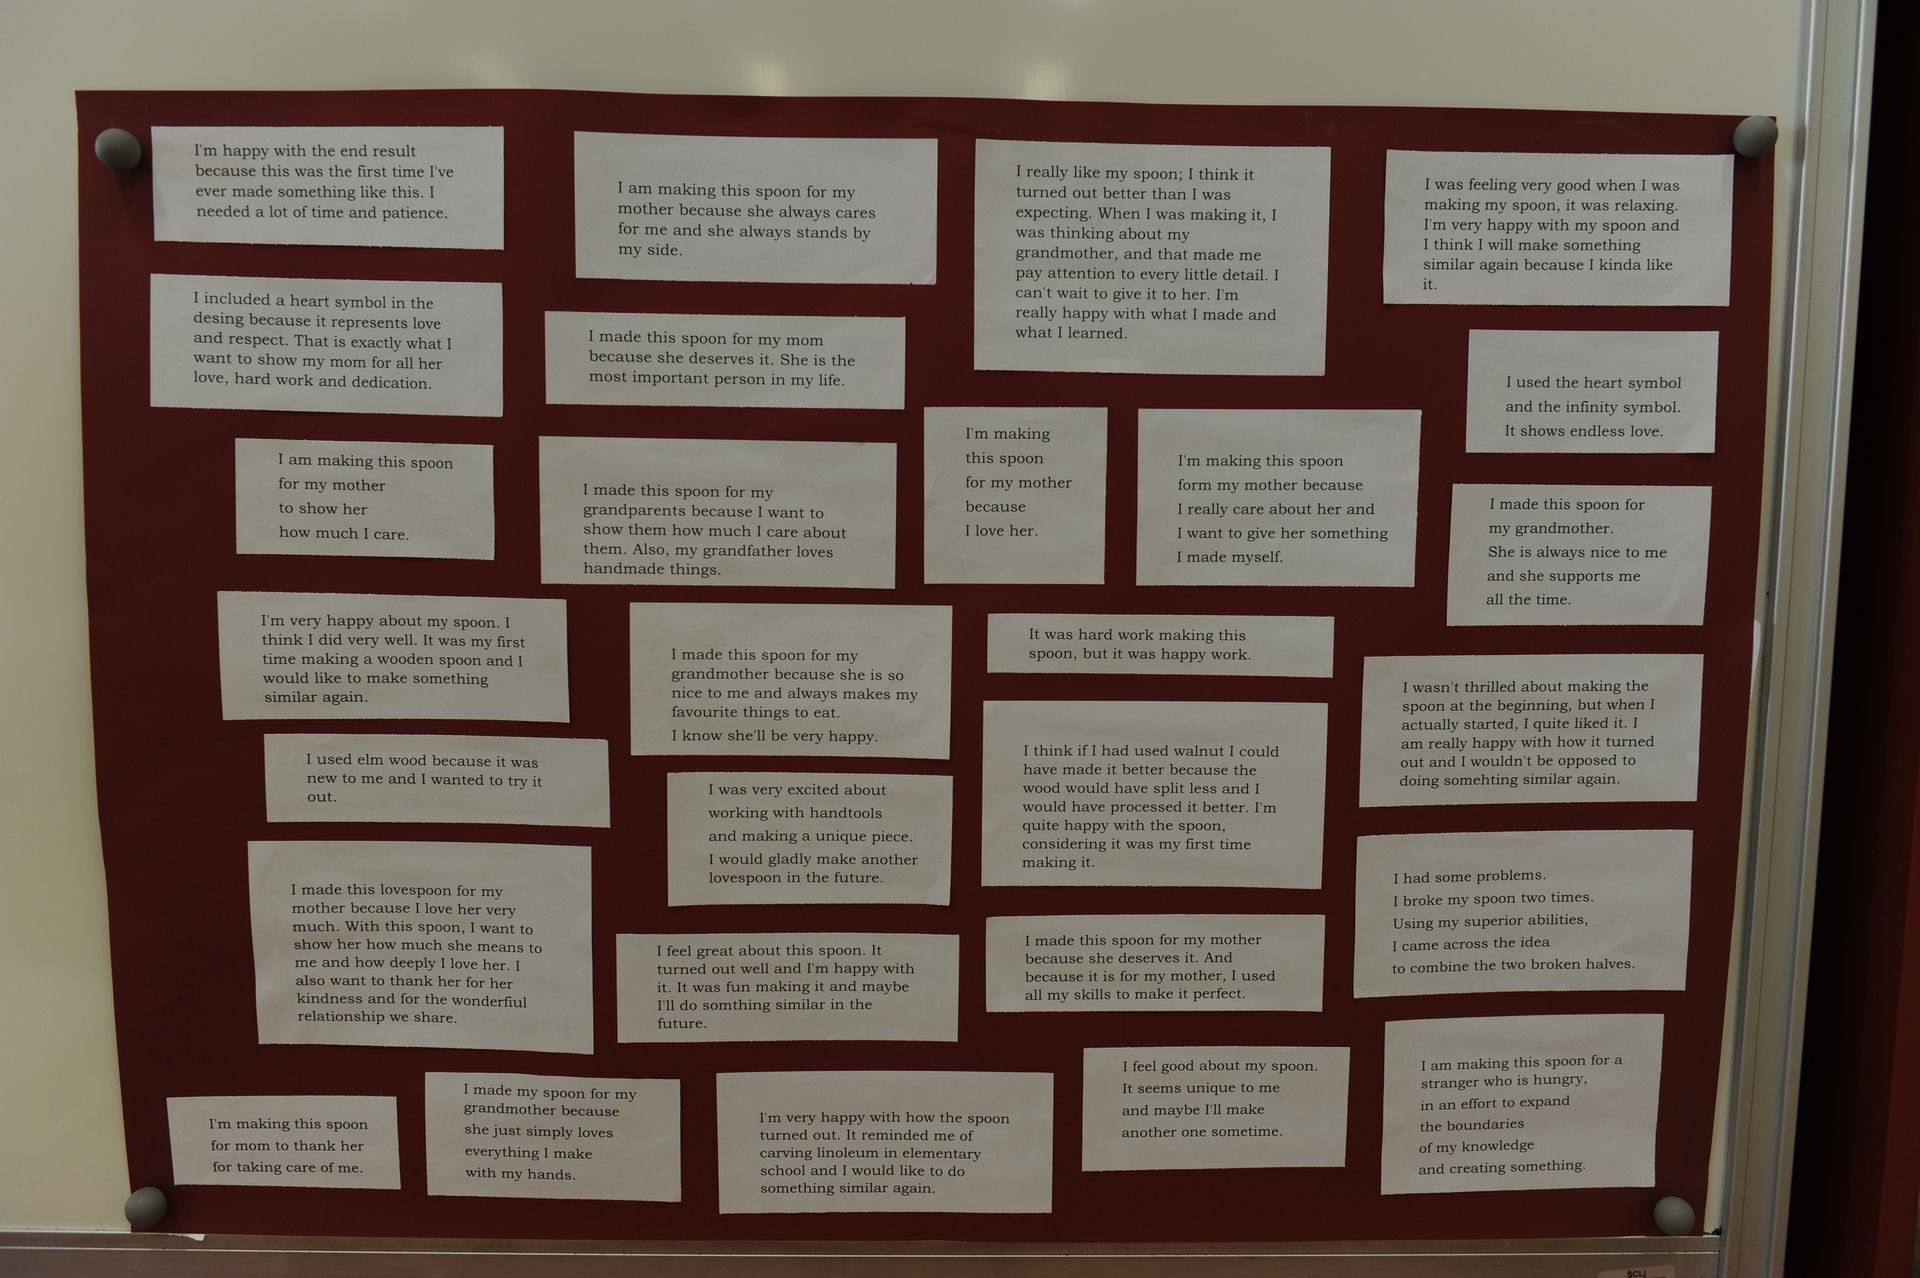 I'm happy with the end result
because this was the first time I've
ever made something like this. I
needed a lot of time and patience.
I am making this spoon for my
mother because she always cares
for me and she always stands by
my side.
I really like my spoon; I think it
turned out better than I was
expecting. When I was making it, I
was thinking about my
grandmother, and that made me
pay attention to every little detail. I
can't wait to give it to her. I'm
really happy with what I made and
what I learned.
I was feeling very good when I was
making my spoon, it was relaxing.
I'm very happy with my spoon and
I think I will make something
similar again because I kinda like
it.
I included a heart symbol in the
desing because it represents love
and respect. That is exactly what I
want to show my mom for all her
love, hard work and dedication.
I made this spoon for my mom
because she deserves it. She is the
most important person in my life.
I used the heart symbol
and the infinity symbol.
It shows endless love.
I am making this spoon
for my mother
to show her
how much I care.
I made this spoon for my
grandparents because I want to
show them how much I care about
them. Also, my grandfather loves
handmade things.
I'm making
this spoon
for my mother
because
I love her.
I'm making this spoon
form my mother because
I really care about her and
I want to give her something
I made myself.
I made this spoon for
my grandmother.
She is always nice to me
and she supports me
all the time.
I'm very happy about my spoon. I
think I did very well. It was my first
time making a wooden spoon and I
would like to make something
similar again.
I made this spoon for my
grandmother because she is so
nice to me and always makes my
favourite things to eat.
I know she'll be very happy.
It was hard work making this
spoon, but it was happy work.
I wasn't thrilled about making the
spoon at the beginning, but when I
actually started, I quite liked it. I
am really happy with how it turned
out and I wouldn't be opposed to
doing somehting similar again.
I used elm wood because it was
new to me and I wanted to try it
out.
I was very excited about
working with handtools
and making a unique piece.
I would gladly make another
lovespoon in the future.
I think if I had used walnut I could
have made it better because the
wood would have split less and I
would have processed it better. I'm
quite happy with the spoon,
considering it was my first time
making it.
I had some problems.
I broke my spoon two times.
Using my superior abilities,
I came across the idea
to combine the two broken halves.
I made this lovespoon for my
mother because I love her very
much. With this spoon, I want to
show her how much she means to
me and how deeply I love her. I
also want to thank her for her
kindness and for the wonderful
relationship we share.
I feel great about this spoon. It
turned out well and I'm happy with
it. It was fun making it and maybe
I'll do somthing similar in the
future.
I made this spoon for my mother
because she deserves it. And
because it is for my mother, I used
all my skills to make it perfect.
I'm making this spoon
for mom to thank her
for taking care of me.
I made my spoon for my
grandmother because
she just simply loves
everything I make
with my hands.
I'm very happy with how the spoon
turned out. It reminded me of
carving linoleum in elementary
school and I would like to do
something similar again.
I feel good about my spoon.
It seems unique to me
and maybe I'll make
another one sometime.
I am making this spoon for a
stranger who is hungry,
in an effort to expand
the boundaries
of my knowledge
and creating something.